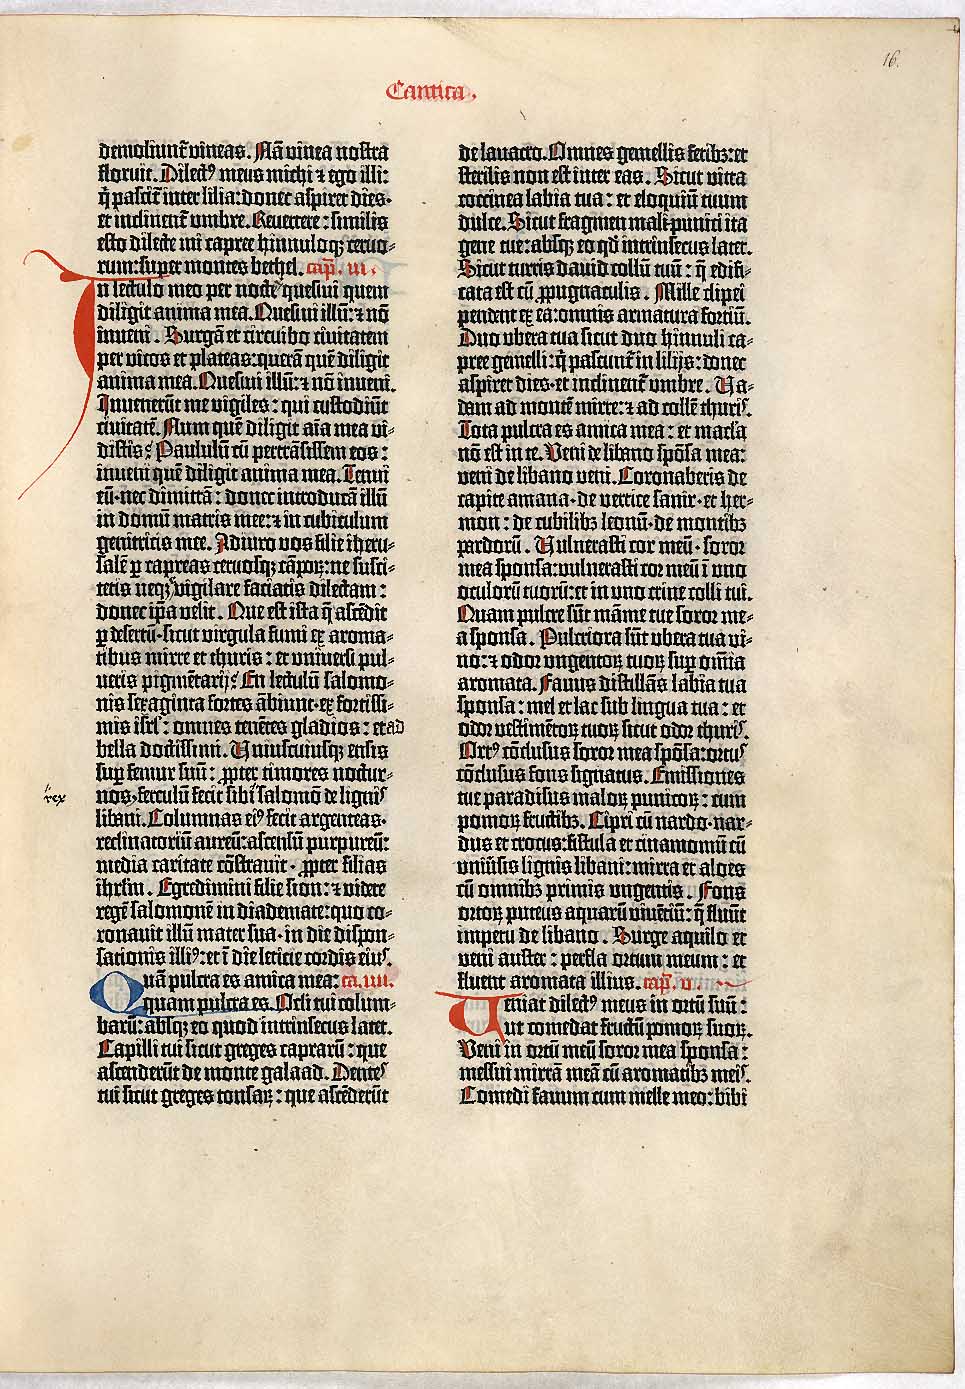 16.
Cantica.
demoliunt᷑ vineas. Nā vinea nostra
floruit. Dilectꝰ meus michi ⁊ ego illi:
q̄ pascit᷑ inter lilia: donec aspiret dies·
et inclinent᷑ umbre. Revertere: similis
esto dilecte mi capree hinnuloqꝫ cervo-
rum: super montes bethel. cap̄. iii.
In lectulo meo per noctes quesivi quem
diligit anima mea. Quesivi illū: ⁊ nō
inveni. Surgā et circuibo civitatem
per vicos et plateas: querā quē diligit
anima mea. Quesivi illū: ⁊ nō inveni.
Invenerūt me vigiles: qui custodiūt
civitatē. Num quē diligit aīa mea vi-
distis? Paululū cū pertrāsissem eos:
inveni quē diligit anima mea. Tenui
eū· nec dimittā: donec introducā illū
in domū matris mee: ⁊ in cubiculum
genitricis mee. Adiuro vos filie iheru-
salē ꝑ capreas cervosqꝫ cāpoꝝ: ne susci-
tetis neqꝫ vigilare faciatis dilectam:
donec ip̄a velit. Que est ista q̄ ascēdit
ꝑ desertū· sicut virgula fumi ex aroma-
tibus mirre et thuris: et universi pul-
veris pigmētarij? En lectulū salomo-
nis sexaginta fortes ābiunt· ex fortissi-
mis isrl': omnes tenētes gladios: et ad
bella doctissimi. Uniuscuiusqꝫ ensis
suꝑ femur suū: ꝓpter timores noctur-
nos, ferculū fecit sibi salomō de lignis
rex
libani. Columnas eiꝰ fecit argenteas·
reclinatoriū aureū: ascensū purpureū:
media caritate cōstravit· ꝓpter filias
ihrl̄m. Egredimini filie sion: ⁊ videte
regē salomonē in diademate: quo co-
ronavit illū mater sua· in die dispon-
sationis illiꝰ: et ī die leticie cordis eius.
Quā pulcra es amica mea: ca. iiii.
quam pulcra es. Ocli tui colum-
barū: absqꝫ eo quod intrinsecus latet.
Capilli tui sicut greges caprarū: que
ascenderūt de monte galaad. Dentes
tui sicut greges tonsaꝝ: que ascēderūt
de lavacro. Omnes gemellis fetibꝫ: et
sterilis non est inter eas. Sicut vitta
coccinea labia tua: et eloquiū tuum
dulce. Sicut fragmen mali punici ita
gene tue: absqꝫ eo qd' intrinsecus latet.
Sicut turris david collū tuū: q̄ edifi-
cata est cū ꝓpugnaculis. Mille clipei
pendent ex ea: omnis armatura fortiū.
Duo ubera tua sicut duo hinnuli ca-
pree gemelli: q̄ pascunt᷑ in lilijs: donec
aspiret dies· et inclinent᷑ umbre. Va-
dam ad montē mirre: ⁊ ad collē thuris.
Tota pulcra es amica mea: et macl'a
nō est in te. Veni de libano spōsa mea:
veni de libano veni. Coronaberis de
capite amana· de vertice sanir· et her-
mon: de cubilibꝫ leonū· de montibꝫ
pardorū. Vulnerasti cor meū· soror
mea sponsa: vulnerasti cor meū ī uno
oculorū tuorū: et in uno crine colli tui.
Quam pulcre sūt māme tue soror me-
a sponsa. Pulcriora sūt ubera tua vi-
no: ⁊ odor ungentoꝝ tuoꝝ suꝑ om̄ia
aromata. Favus distillās labia tua
sponsa: mel et lac sub lingua tua: et
odor vestimētoꝝ tuoꝝ sicut odor thuris.
Ortꝰ cōclusus soror mea spōsa: ortus
cōclusus fons signatus. Emissiones
tue paradisus maloꝝ punicoꝝ: cum
pomoꝝ fructibꝫ. Cipri cū nardo· nar-
dus et crocus: fistula et cinamomū cū
univ̄sis lignis libani: mirra et aloes
cū omnibꝫ primis ungentis. Fons
ortoꝝ puteus aquarū viventiū: q̄ fluūt
impetu de libano. Surge aquilo et
veni auster: perfla ortum meum: et
fluent aromata illius. cap̄. v.
Veniat dilectꝰ meus in ortū suū:
ut comedat fructū pomoꝝ suoꝝ.
Veni in ortū meū soror mea sponsa:
messui mirrā meā cū aromatibꝫ meis.
Comedi favum cum melle meo: bibi